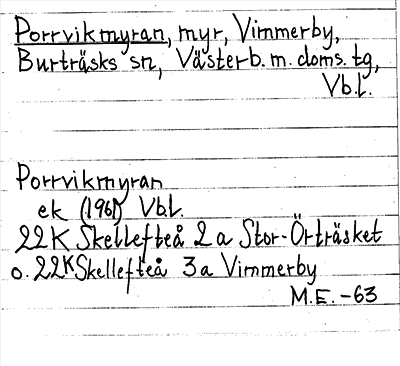 Porrvikmyran, myr, Vimmerby,
Burträsks sn, Västerb. m. doms. tg,
Vb.l.
Porrvikmyran
ek (1961) Vb.l.
22K Skellefteå 2a Stor-Örträsket
o. 22K Skellefteå 3a Vimmerby
M.E. -63